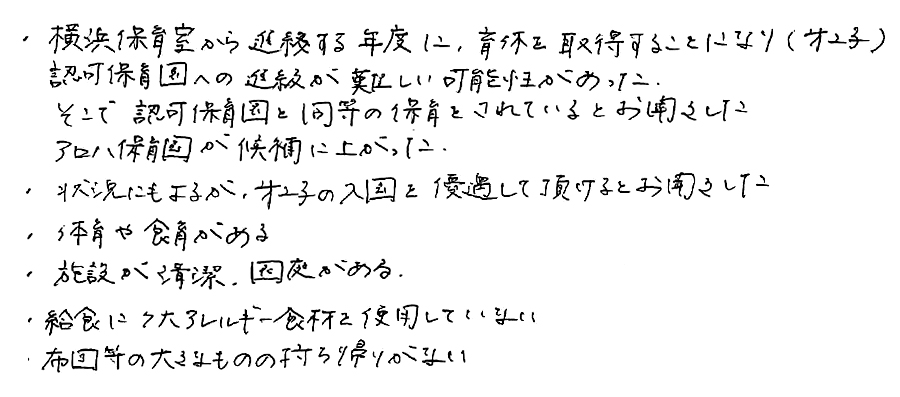 ・横浜保育室から進級する年度に、育休を取得することになり(オ2子)
認可保育園への進級が難しい可能性があった。
そこで認可保育園と同等の保育をされているとお聞きした
アロハ保育園が候補に上がった。
・状況にもよるが、オ2子の入園を優遇して頂けるとお聞きした
・体育や食育がある
・施設が清潔、園庭がある。
・給食に7大アレルギー食材を使用していない
・布団等の大きなものの持ち帰りがない